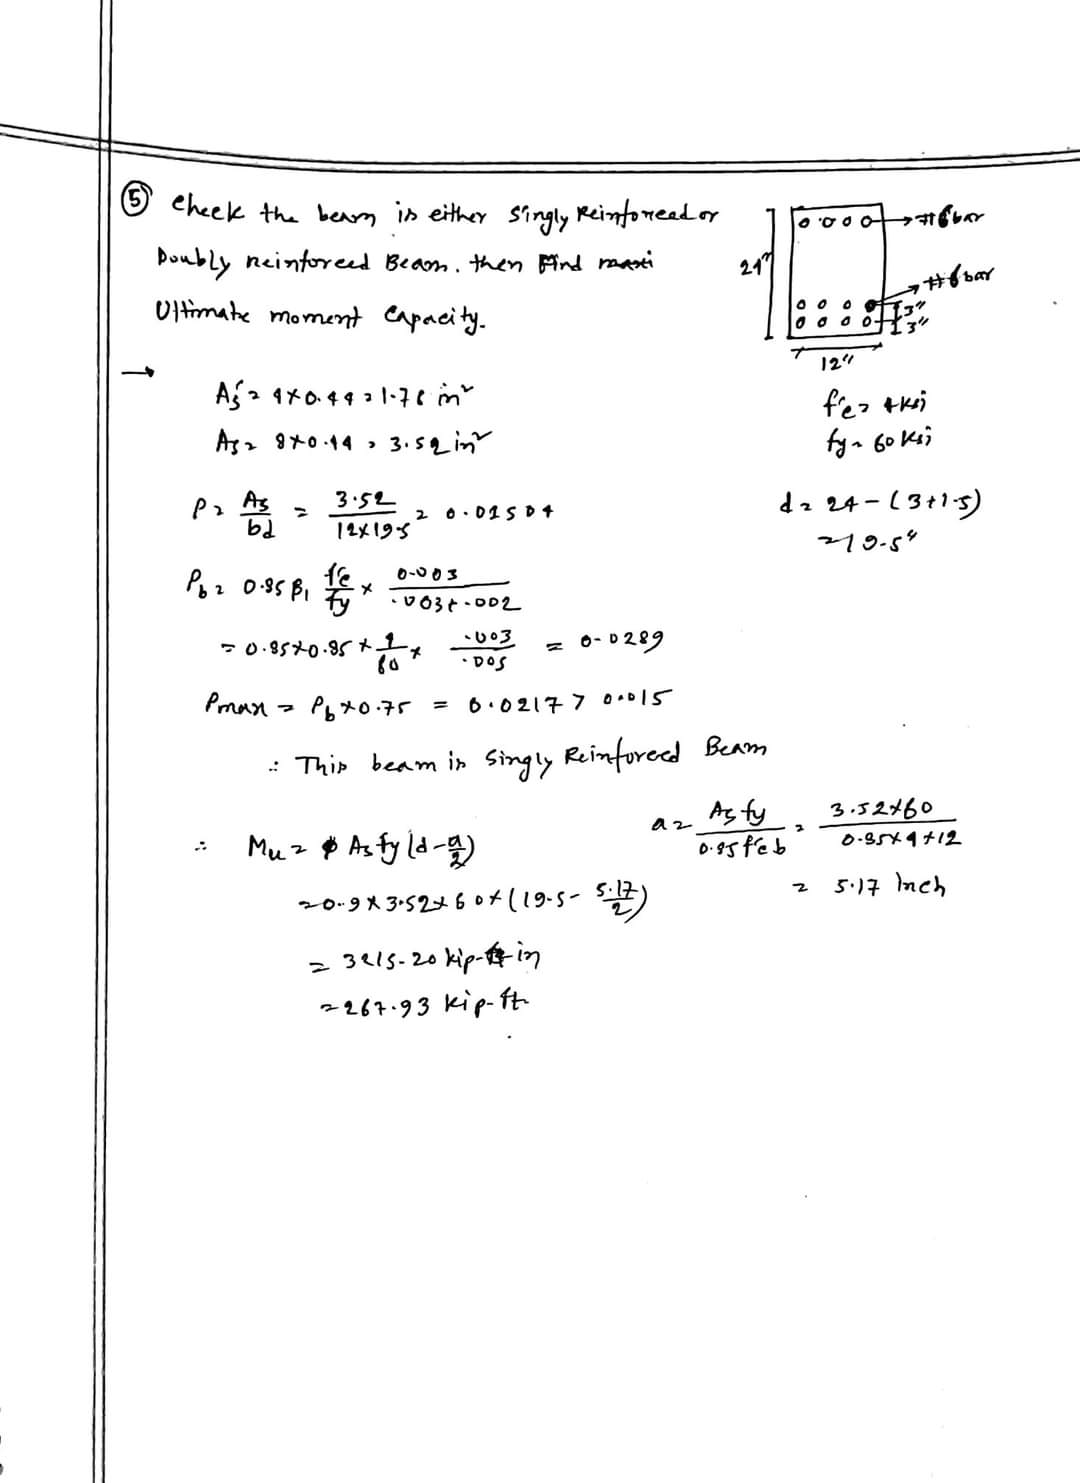 ⑤ Check the beam is either Singly Reinforced or
Doubly reinforced Beam. then Find
Ultimate moment Capacity.
24"
→ #6 bar
→ #6 bar
3"
3"
12"
f'c = 4 ksi
fy = 60 ksi
→
As' = 4×0.44 = 1.76 in²
As = 8×0.44 = 3.52 in²
ρ = As/bd = 3.52/12×19.5 = 0.01504
d = 24 - (3+1.5)
= 19.5"
ρb = 0.85 β1 f'c/fy × 0.003/.003+.002
= 0.85×0.85×4/60× .003/.005 = 0.0289
ρmax = ρb×0.75 = 0.0217 > 0.015
∴ This beam is Singly Reinforced Beam
∴ Mu = φ As fy (d-a/2)
a = As fy/0.85 f'c b = 3.52×60/0.85×4×12
= 5.17 Inch
= 0.9×3.52×60×(19.5- 5.17/2)
= 3215.20 kip-in
= 267.93 kip-ft